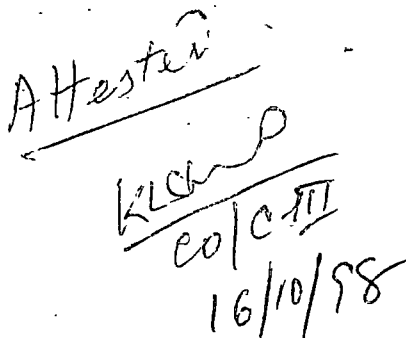 Attested
CO/C III
16/10/98